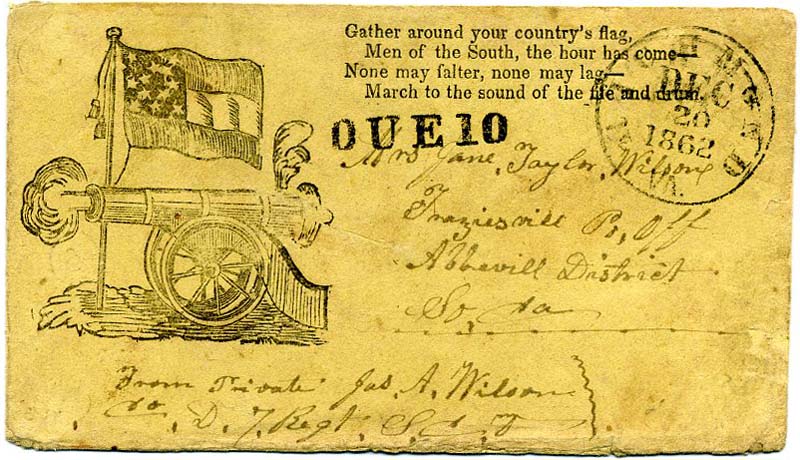 Gather around your country's flag,
Men of the South, the hour has come—
None may falter, none may lag—
March to the sound of the fife and drum.
RICHMOND
DEC
20
1862
VA.
DUE 10
Mrs Jane, Taylor, Wilson
Fraziesvill Ps, Off
Abbevill District
So Ca
From Private Jas, A, Wilson
Co, D, 7, Regt, S, C, V